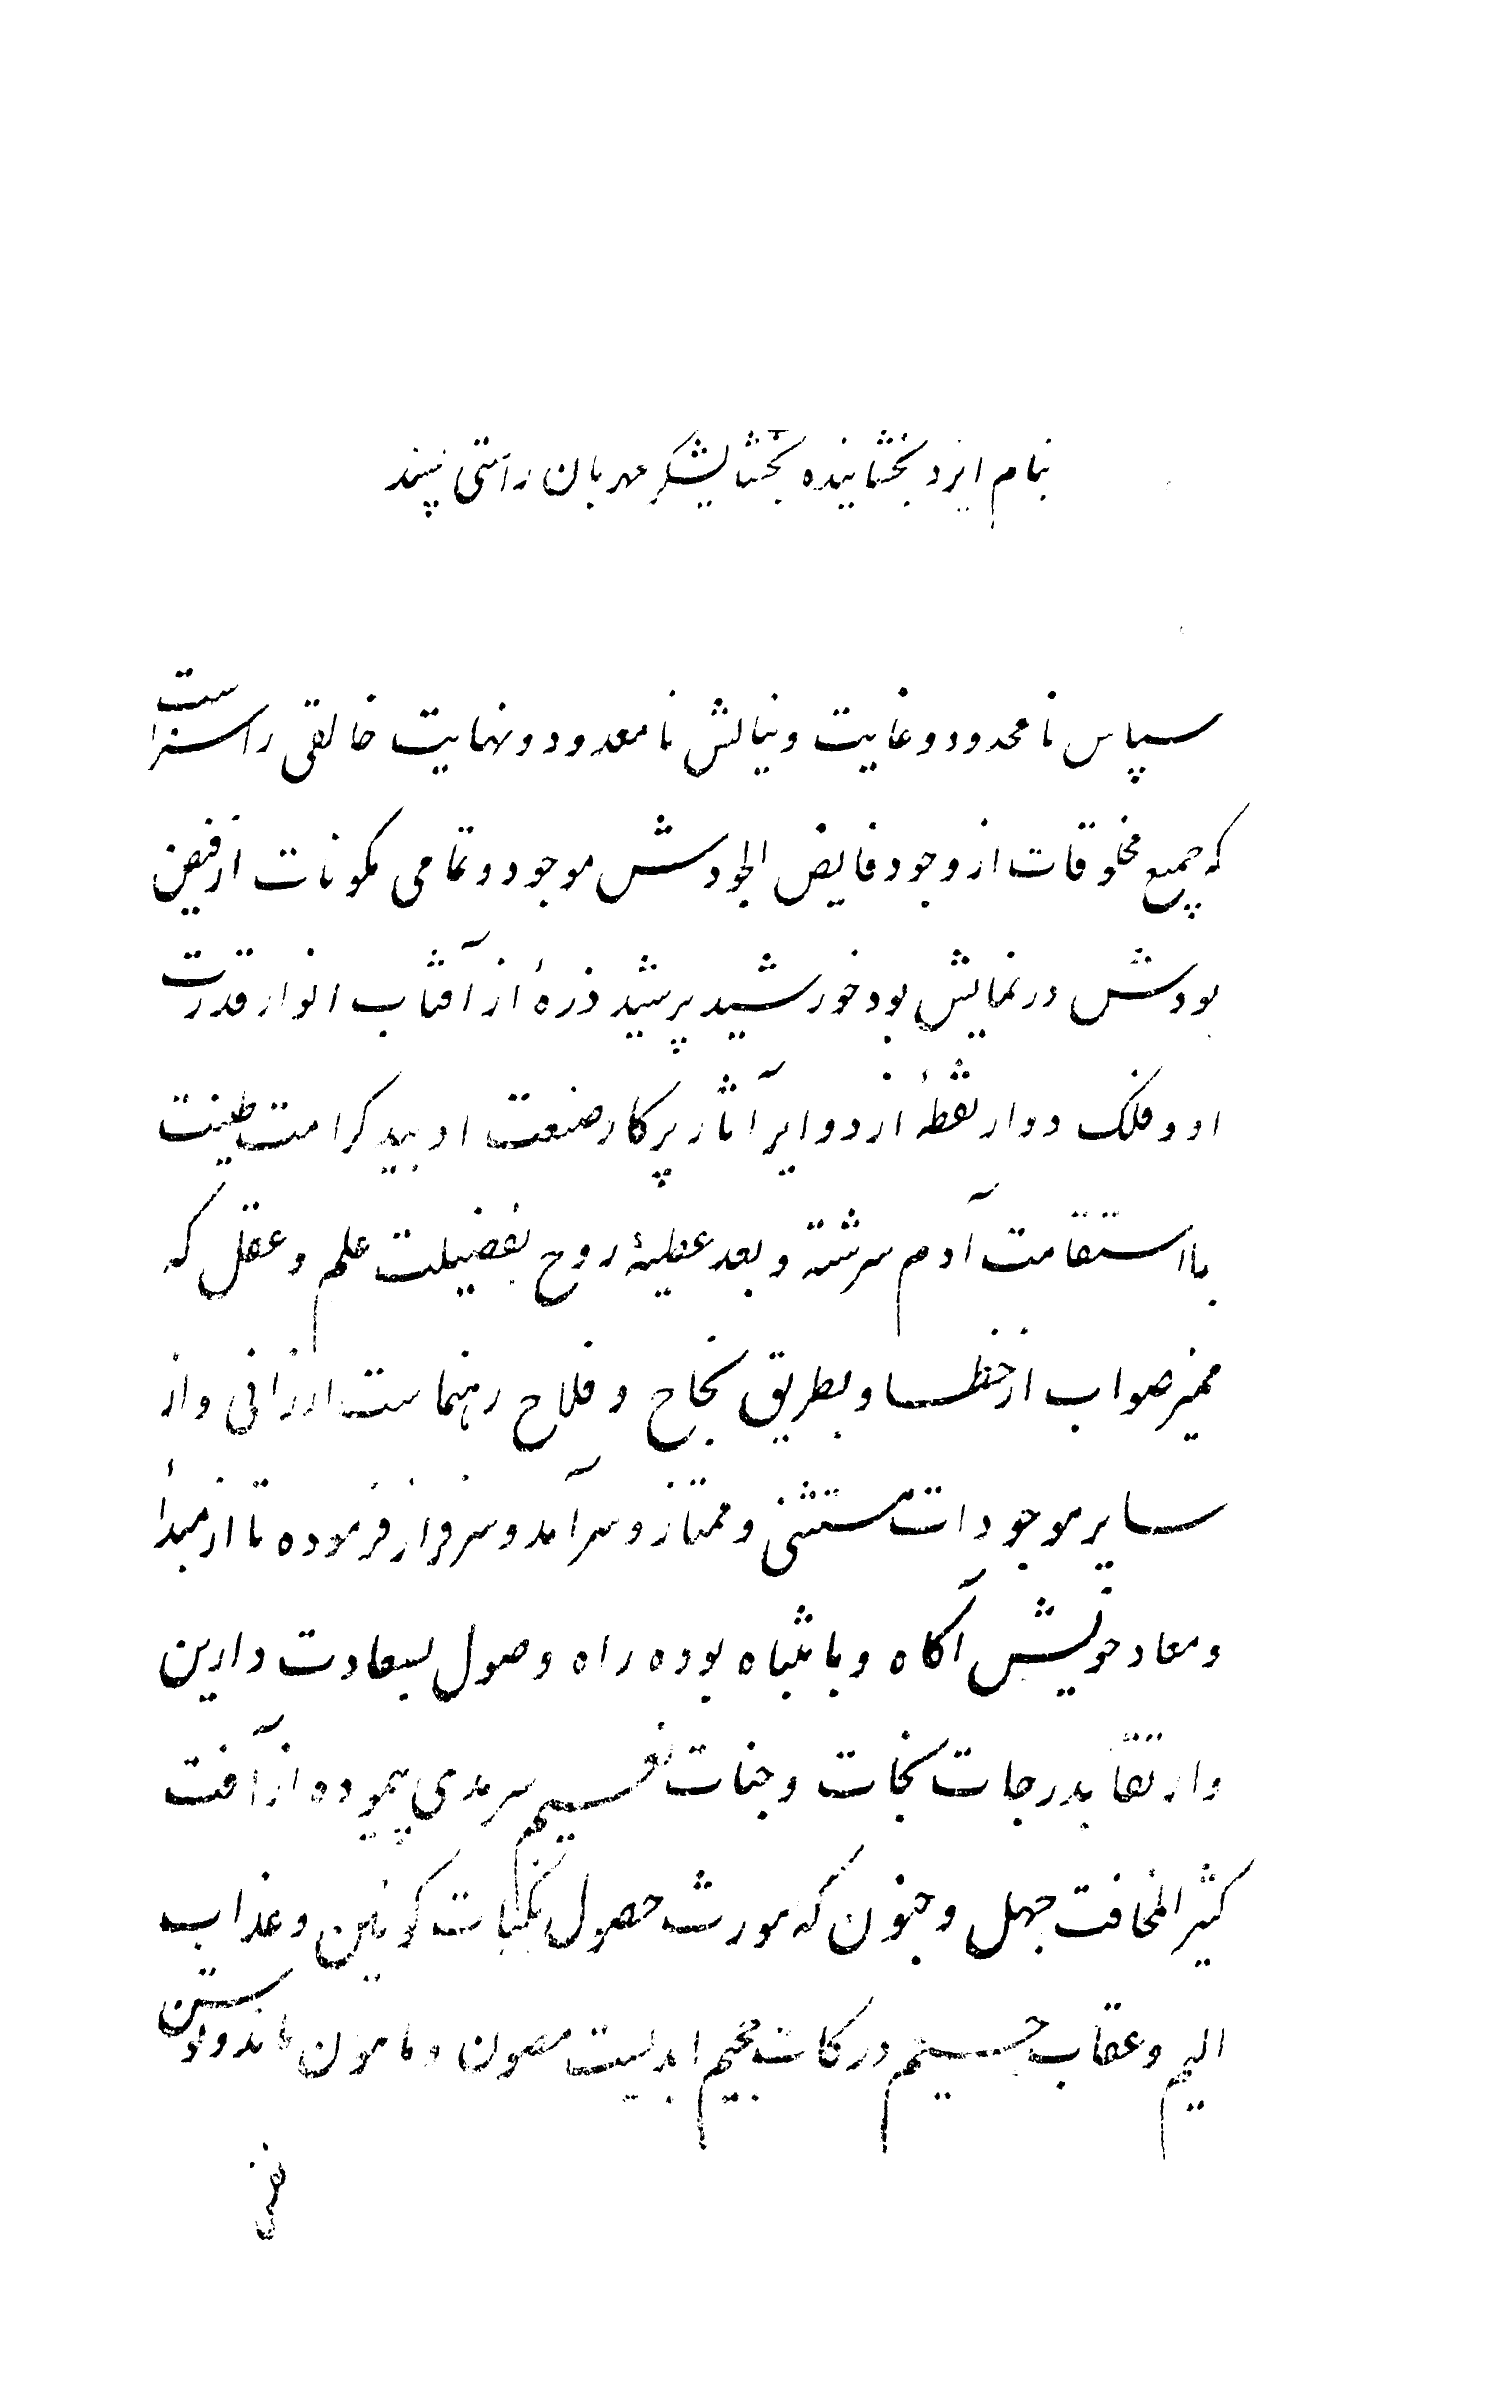 بنام ایزد بخشاینده بخشایشگر مهربان راستی پسند
سپاس نامحدود و غایت و نیایش نامعدود و نهایت خالقی را سزاست
که جمیع مخلوقات از وجود فایض الجودش موجود و تمامی مکونات از فیض
بودش در نمایش بود خورشید پرشید ذرهٔ از آفتاب انوار قدرت
او و فلک دوار نقطهٔ از دوایر آثار پرکار صنعت او بید کرامت طینت
با استقامت آدم سرشته و بعد عطیهٔ روح بفضیلت علم و عقل که
ممیز صواب از خطا و بطریق نجاح و فلاح رهنماست ارزانی و از
سایر موجودات مستثنی و ممتاز و سرآمد و سرفراز فرموده تا از مبدأ
و معاد خویش آکاه و با نتباه بوده راه وصول بسعادت دارین
و ارتقا بدرجات نجات و جنات نعیم سرمدی پیموده از آفت
کثیر المخافت جهل و جنون که مورث حصول نکبات کونین و عذاب
الیم و عقاب جسیم درکات جحیم ابدیست مصون و مامون ماند و لوستن